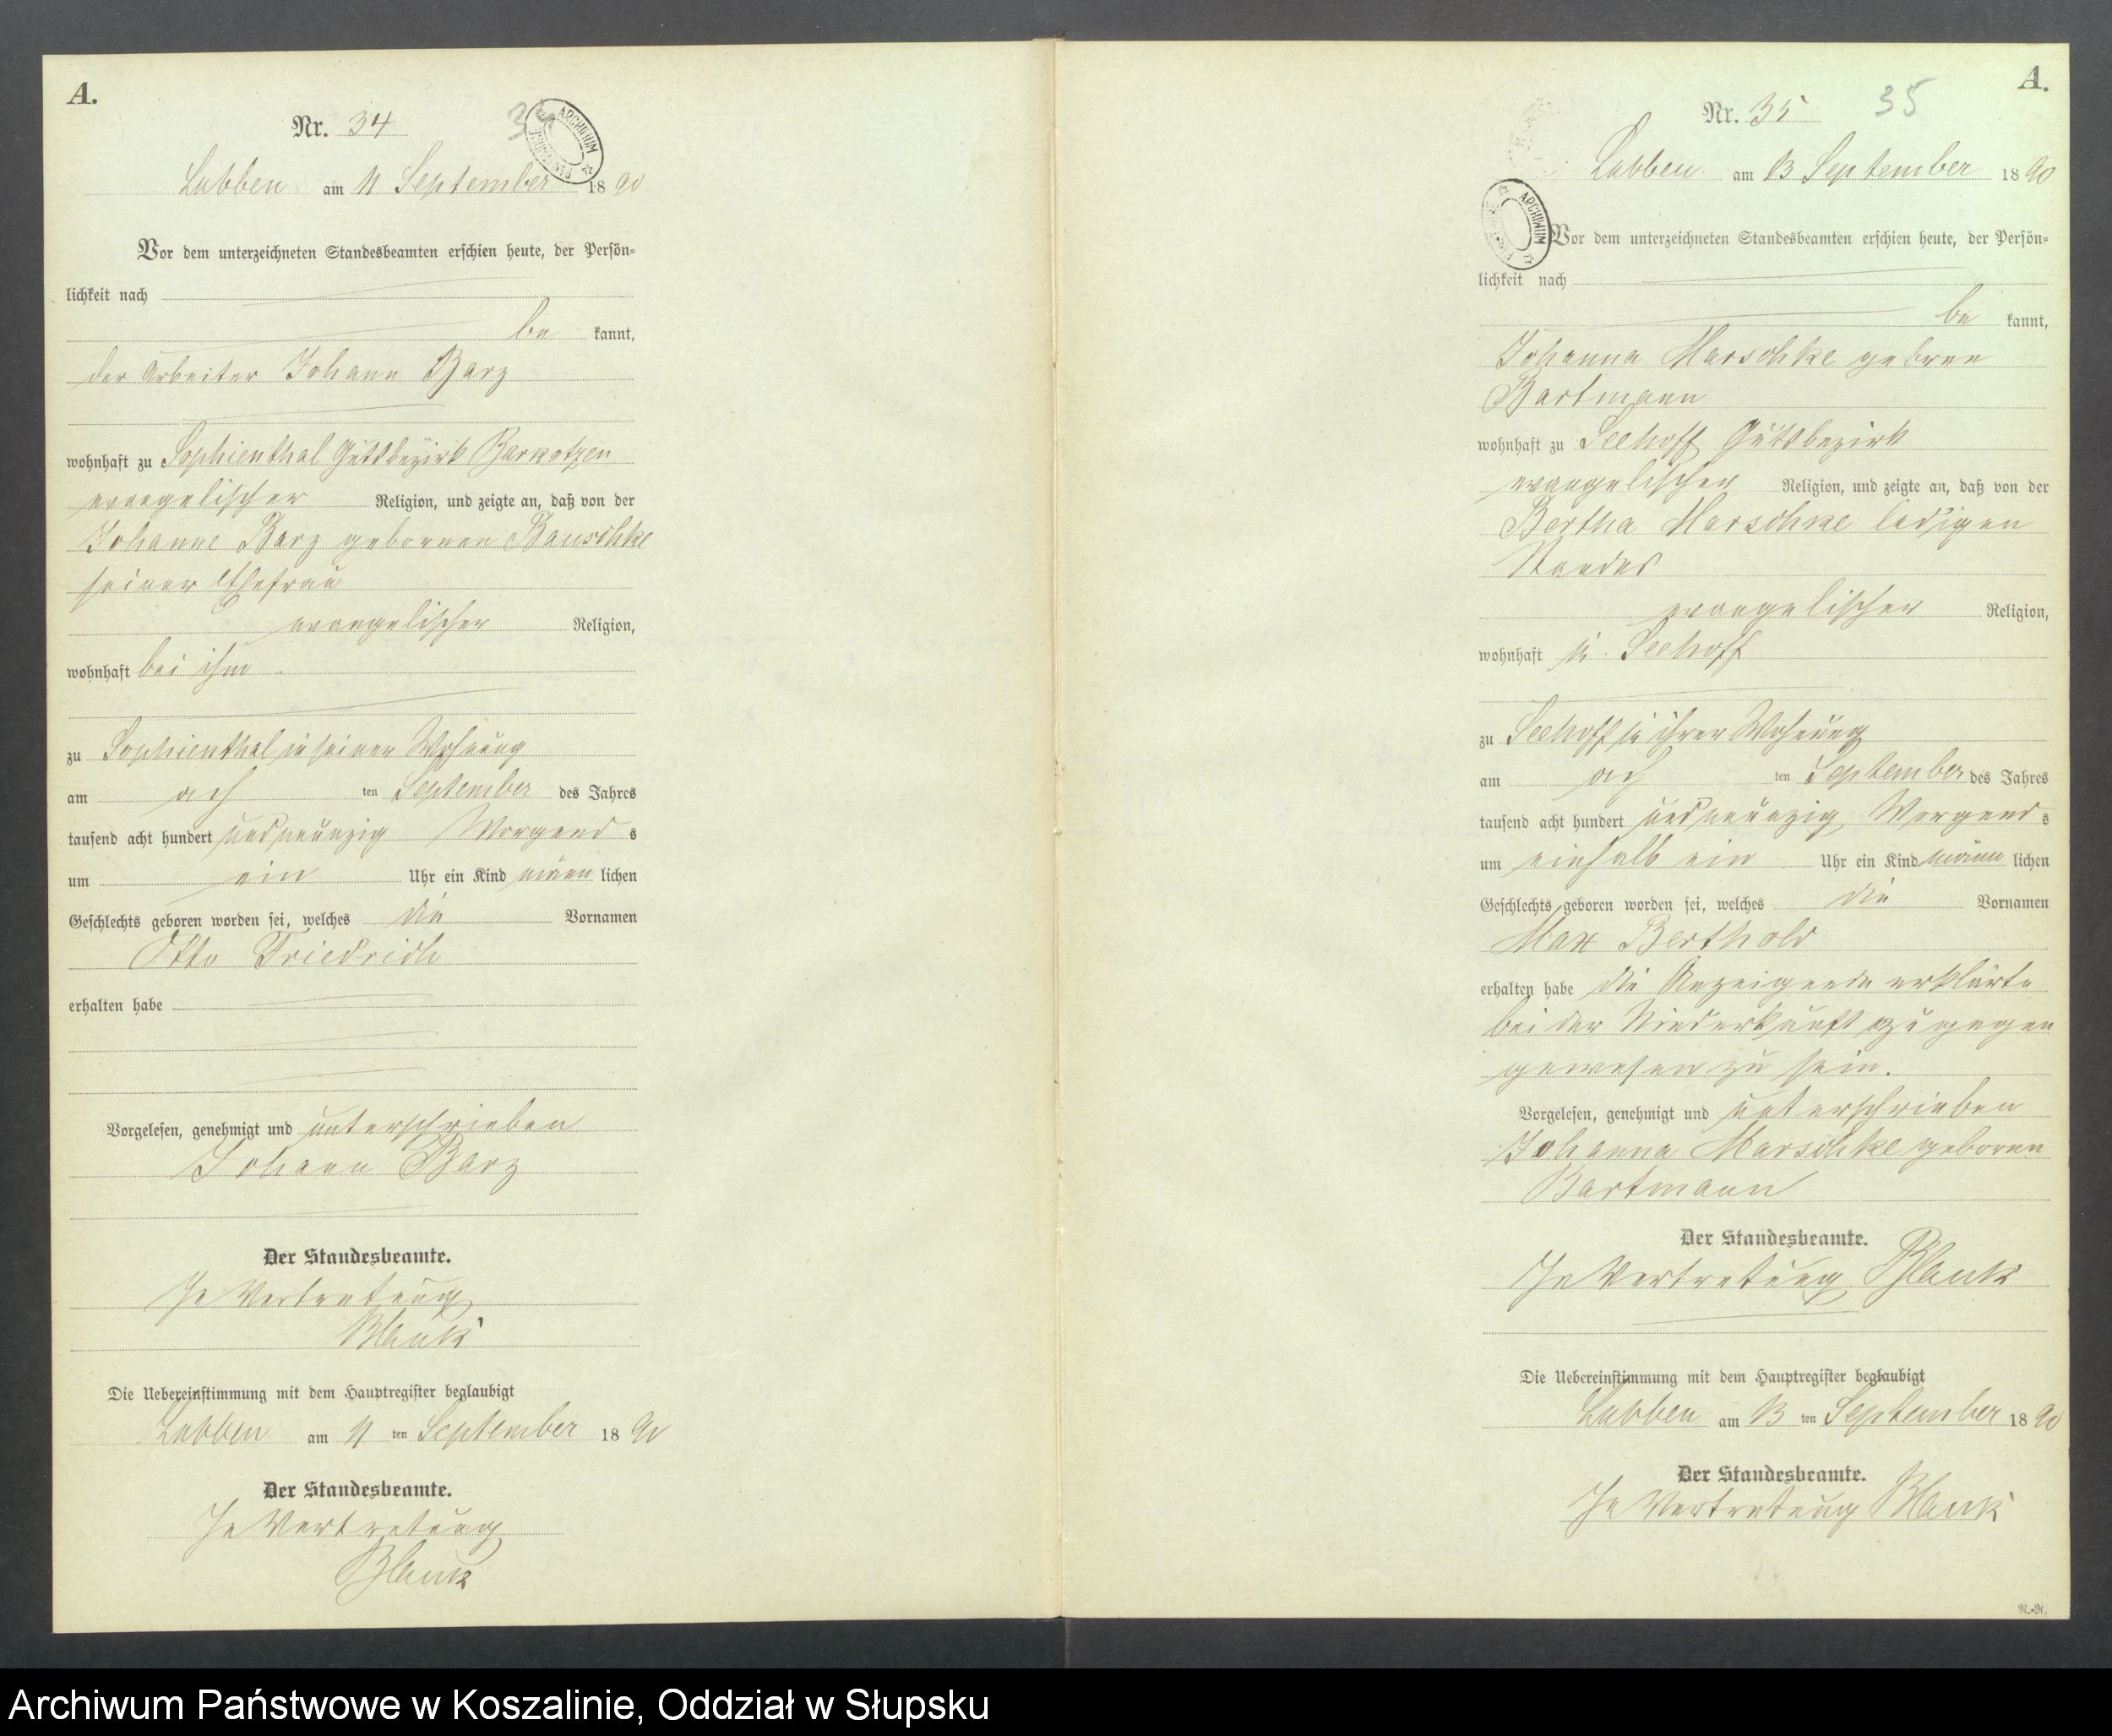 A.
Nr. 34
34
ARCHIWUM
Labben am 11 September 1890
Vor dem unterzeichneten Standesbeamten erschien heute, der Persön-
lichkeit nach
be kannt,
der Arbeiter Johann Barz
wohnhaft zu Sophienthal Gutsbezirk Barkotzen
evangelischer Religion, und zeigte an, daß von der
Johanne Barz geborenen Bauschke
seiner Ehefrau
evangelischer Religion,
wohnhaft bei ihm
zu Sophienthal in seiner Wohnung
am acht ten September des Jahres
tausend acht hundert und neunzig Morgens
um ein Uhr ein Kind männlichen
Geschlechts geboren worden sei, welches die Vornamen
Otto Friedrich
erhalten habe
Vorgelesen, genehmigt und unterschrieben
Johann Barz
Der Standesbeamte.
In Vertretung
Blank
Die Uebereinstimmung mit dem Hauptregister beglaubigt
Labben am 11 ten September 1890
Der Standesbeamte.
In Vertretung
Blank
A.
Nr. 35
35
ARCHIWUM
Labben am 13 September 1890
Vor dem unterzeichneten Standesbeamten erschien heute, der Persön-
lichkeit nach
be kannt,
Johanna Marschke geboren
Bartmann
wohnhaft zu Seehoff Gutsbezirk
evangelischer Religion, und zeigte an, daß von der
Bertha Marschke ledigen
Standes
evangelischer Religion,
wohnhaft in Seehoff
zu Seehoff in ihrer Wohnung
am acht ten September des Jahres
tausend acht hundert und neunzig Morgens
um einhalb ein Uhr ein Kind männlichen
Geschlechts geboren worden sei, welches die Vornamen
Max Berthold
erhalten habe die Anzeigende erklärte
bei der Niederkunft zugegen
gewesen zu sein.
Vorgelesen, genehmigt und unterschrieben
Johanna Marschke geboren
Bartmann
Der Standesbeamte.
In Vertretung Blank
Die Uebereinstimmung mit dem Hauptregister beglaubigt
Labben am 13 ten September 1890
Der Standesbeamte.
In Vertretung Blank
Archiwum Państwowe w Koszalinie, Oddział w Słupsku